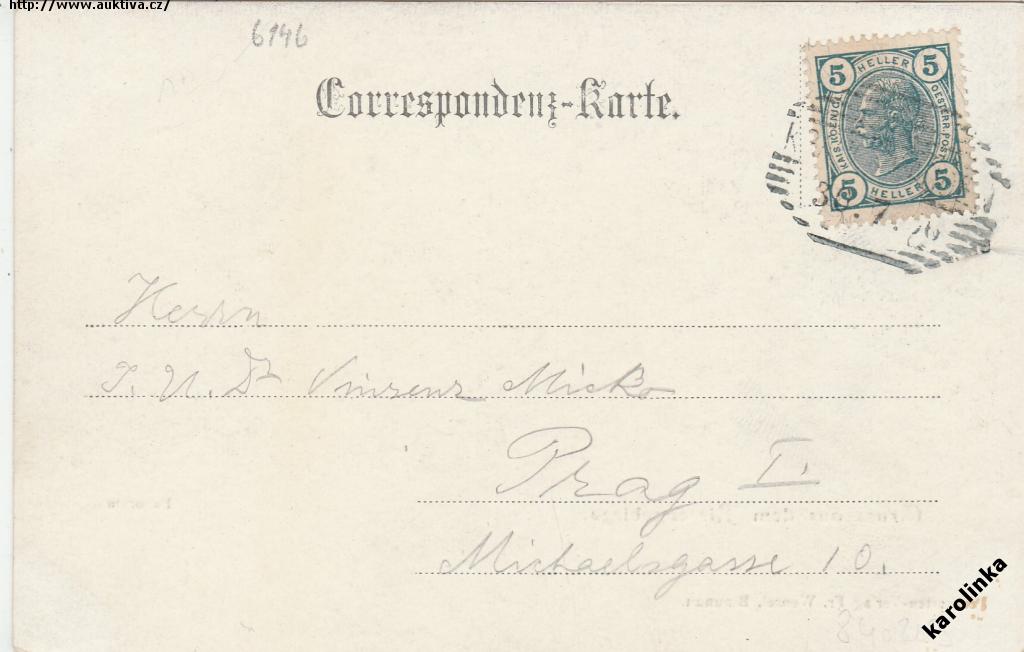 http://www.auktiva.cz/
6146
Correspondenz-Karte.
5 HELLER 5
KAIS. KOENIGL. OESTERR. POST
5 HELLER 5
Herrn
J. U. Dr Vinzenz Micko
Prag I.
Michaelsgasse 10.
karolinka